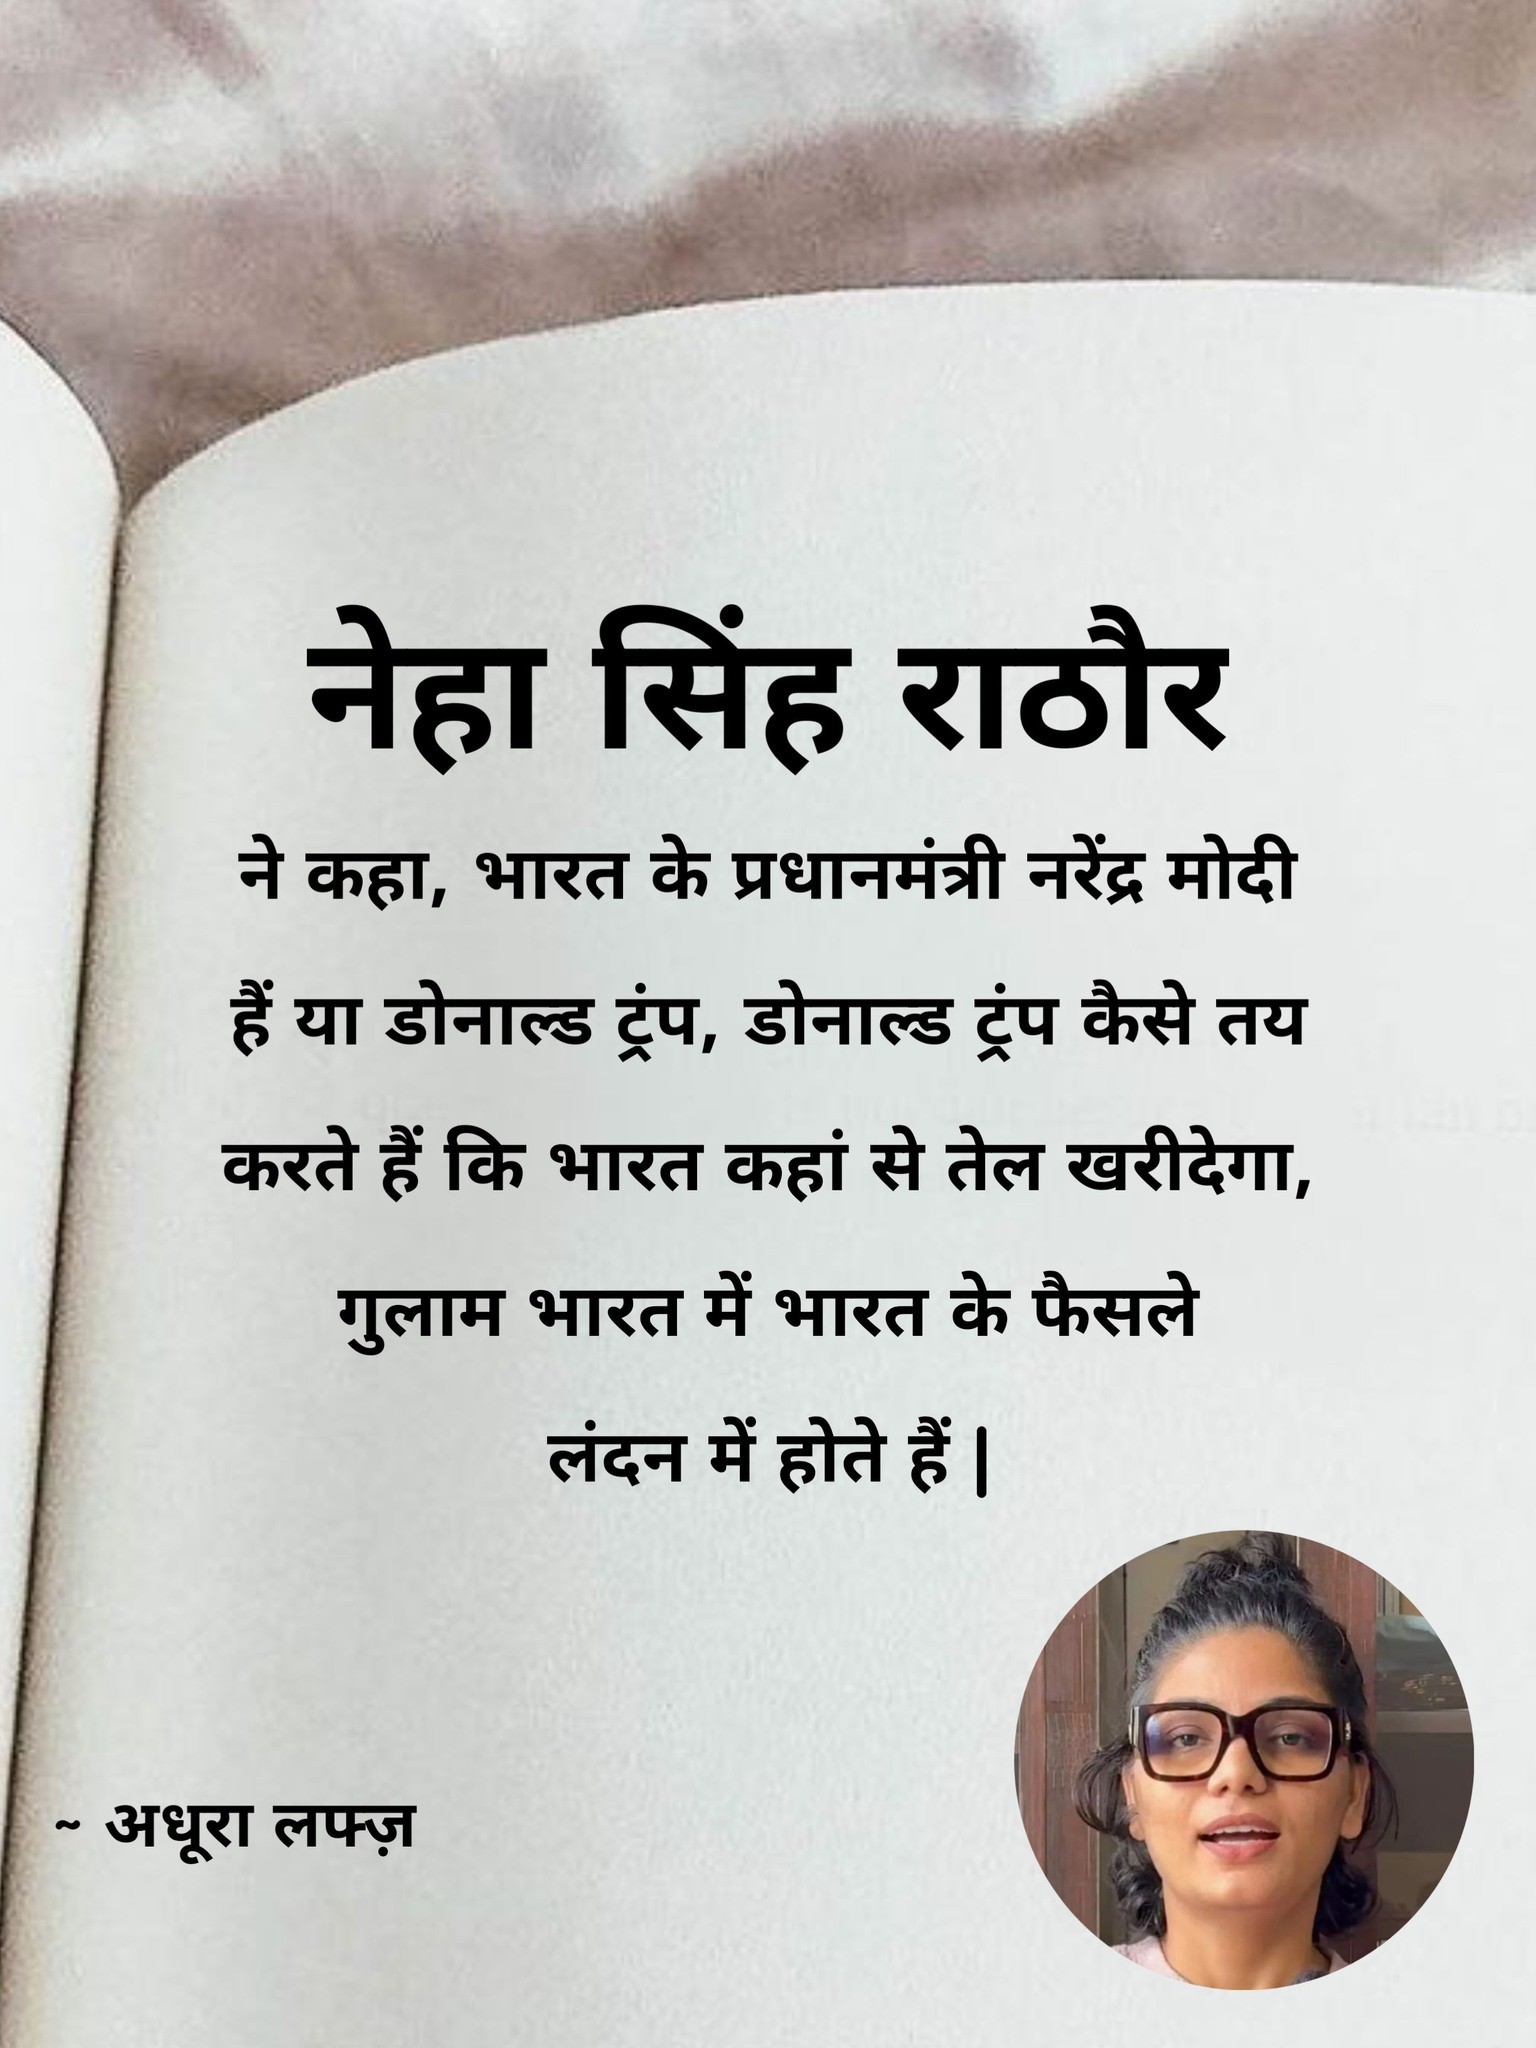 नेहा सिंह राठौर
ने कहा, भारत के प्रधानमंत्री नरेंद्र मोदी
हैं या डोनाल्ड ट्रंप, डोनाल्ड ट्रंप कैसे तय
करते हैं कि भारत कहां से तेल खरीदेगा,
गुलाम भारत में भारत के फैसले
लंदन में होते हैं |
~ अधूरा लफ्ज़